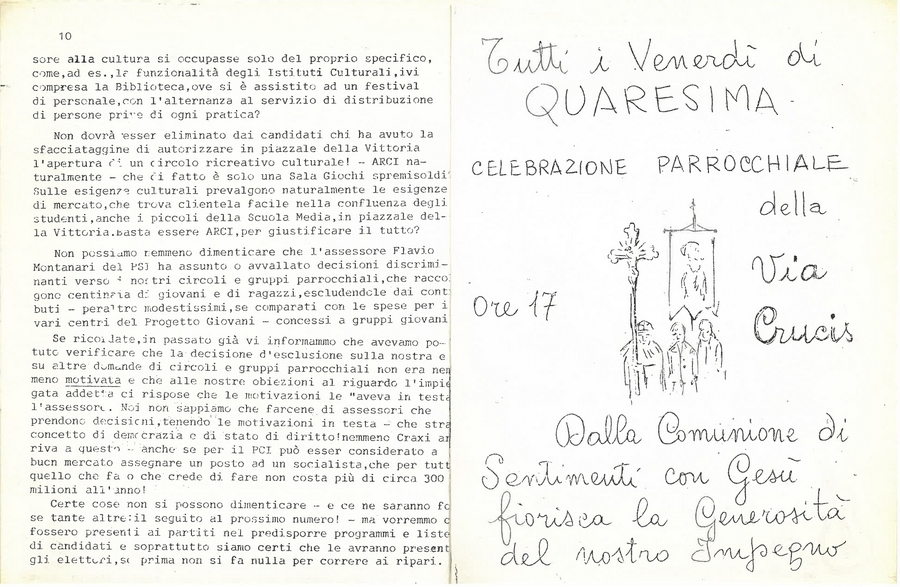 10
sore alla cultura si occupasse solo del proprio specifico,
come,ad es.,la funzionalità degli Istituti Culturali,ivi
compresa la Biblioteca,ove si è assistito ad un festival
di personale,con l'alternanza al servizio di distribuzione
di persone prive di ogni pratica?
Non dovrà esser eliminato dai candidati chi ha avuto la
sfacciataggine di autorizzare in piazzale della Vittoria
l'apertura di un circolo ricreativo culturale! - ARCI na-
turalmente - che di fatto è solo una Sala Giochi spremisoldi
Sulle esigenze culturali prevalgono naturalmente le esigenze
di mercato,che trova clientela facile nella confluenza degli
studenti,anche i piccoli della Scuola Media,in piazzale del-
la Vittoria.Basta essere ARCI,per giustificare il tutto?
Non possiamo nemmeno dimenticare che l'assessore Flavio
Montanari del PSI ha assunto o avvallato decisioni discrimi-
nanti verso i nostri circoli e gruppi parrocchiali,che racco
gono centinaia di giovani e di ragazzi,escludendole dai cont
buti - peraltro modestissimi,se comparati con le spese per i
vari centri del Progetto Giovani - concessi a gruppi giovani
Se ricordate,in passato già vi informammo che avevamo po-
tuto verificare che la decisione d'esclusione sulla nostra e
su altre domande di circoli e gruppi parrocchiali non era nem
meno motivata e che alle nostre obiezioni al riguardo l'impie
gata addetta ci rispose che le motivazioni le "aveva in testa
l'assessore. Noi non sappiamo che farcene di assessori che
prendono decisioni,tenendo le motivazioni in testa - che stra
concetto di democrazia e di stato di diritto!nemmeno Craxi ar
riva a questo - anche se per il PCI può esser considerato a
buon mercato assegnare un posto ad un socialista,che per tutt
quello che fa o che crede di fare non costa più di circa 300
milioni all'anno!
Certe cose non si possono dimenticare - e ce ne saranno fo
se tante altre:il seguito al prossimo numero! - ma vorremmo c
fossero presenti ai partiti nel predisporre programmi e liste
di candidati e soprattutto siamo certi che le avranno present
gli elettori,se prima non si fa nulla per correre ai ripari.
Tutti i Venerdì di
QUARESIMA
CELEBRAZIONE PARROCCHIALE
della
Via
Crucis
Ore 17
Dalla Comunione di
Sentimenti con Gesù
fiorisca la Generosità
del nostro Impegno